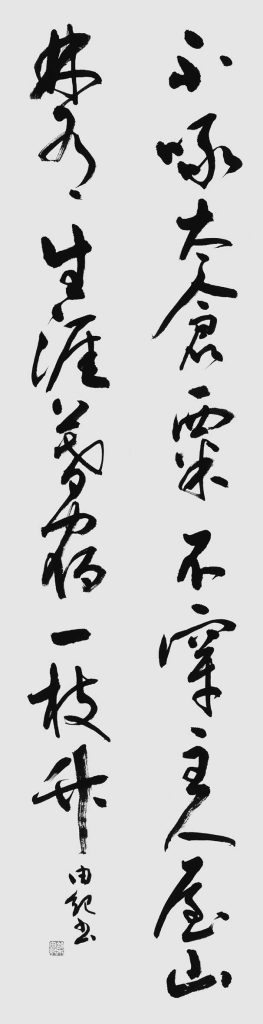 不啄太倉粟不穿主人屋山
林有生涯暮宿一枝竹
由紀書